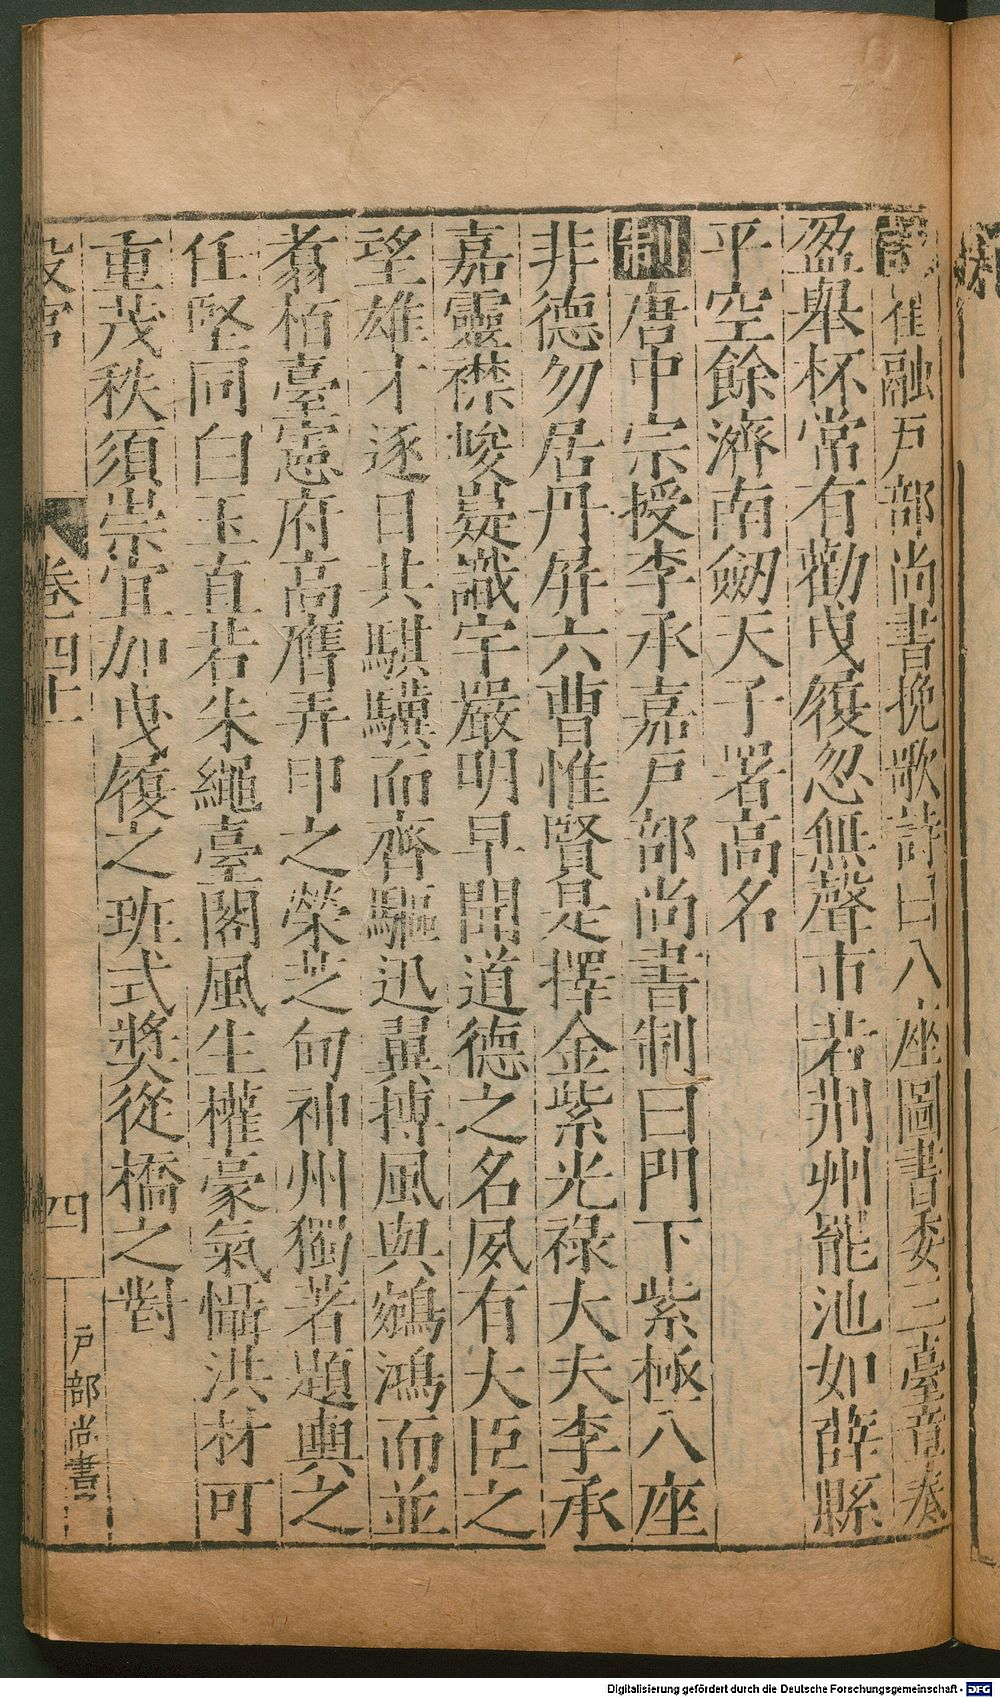 詩崔融戶部尚書挽歌詩曰八座圖書委三臺章奏
盈舉杯常有勸曳履忽無聲市若荆州罷池如薛縣
平空餘濟南劒天子署高名
制唐中宗授李承嘉戶部尚書制曰門下紫極八座
非德勿居丹屏六曹惟賢是擇金紫光祿大夫李承
嘉靈襟峻嶷識宇嚴明早聞道德之名夙有大臣之
望雄才逐日共騏驥而齊驅迅翼搏風與鵷鴻而並
翥栢臺憲府高膺弄印之榮芝甸神州獨著題輿之
任堅同白玉直若朱繩臺閣風生權豪氣懾洪材可
重茂秩須崇宜加曳履之班式奬從橋之對
設官
卷四上
四
戶部尚書
Digitalisierung gefördert durch die Deutsche Forschungsgemeinschaft - DFG